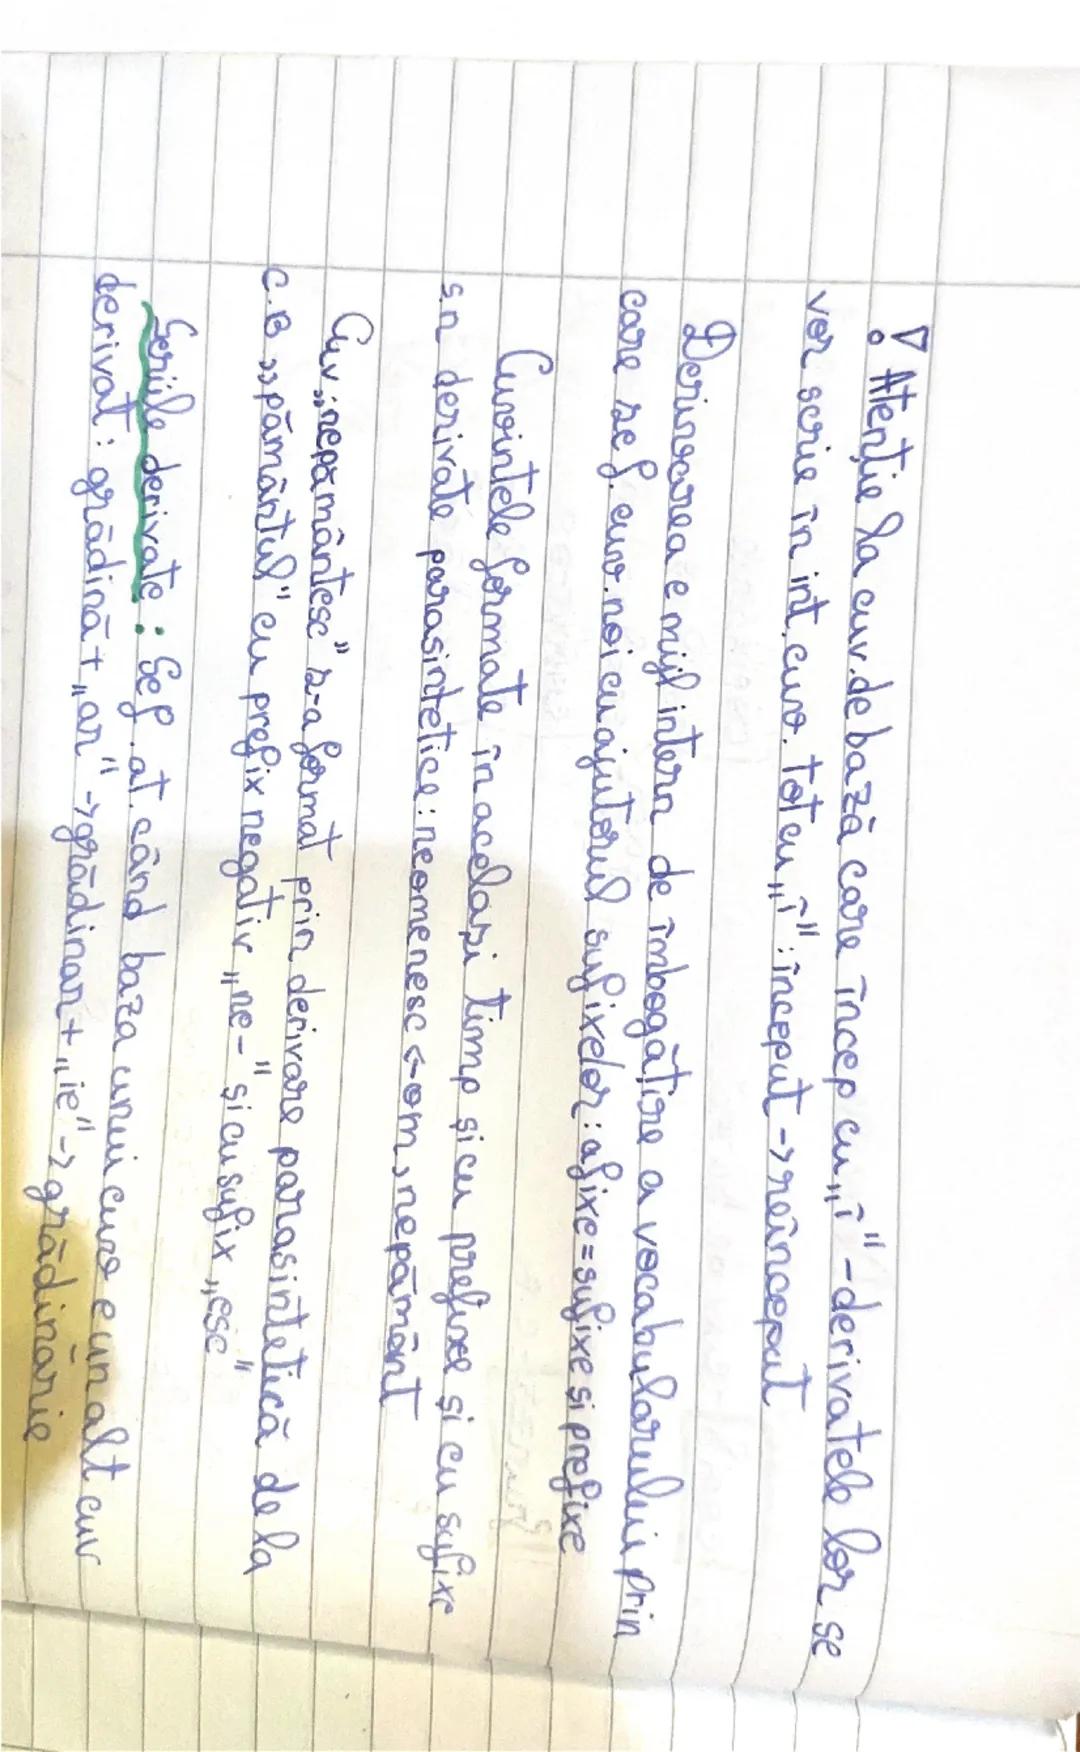 ! Atenție la cuv. de bază care încep cu „î" - derivatele lor se
vor scrie în int. cuv. tot cu „î": început -> reînceput
Derivarea e mijl intern de îmbogățire a vocabularului prin
care se f. cuv. noi cu ajutorul sufixelor: afixe = sufixe și prefixe
Cuvintele formate în același timp și cu prefixe și cu sufixe
s.n derivate parasintetice: neomenesc <- om, nepământ
Cuv „nepământesc" s-a format prin derivare parasintetică de la
c.B „pământul" cu prefix negativ „ne-" și cu sufix „esc"
Seriile derivate: Se f. at. când baza unui cuv e un alt cuv
derivat: grădină + „ar" -> grădinar + „ie" -> grădinărie